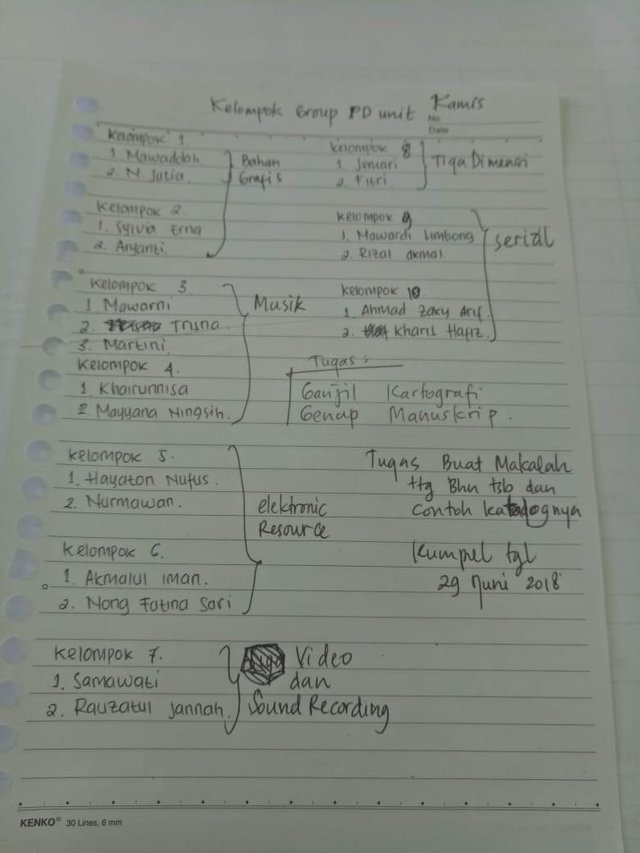 Kelompok Group PD unit Kamis
No
Date
Kelompok 1
1. Mawaddah
2. N Julia
Bahan
Grafis
Kelompok 2.
1. Sylvia Erna
2. Aryanti.
Kelompok 3.
1 Mawarni
2. Trisna.
3. Martini.
Musik
Kelompok 4.
1. Khairunnisa
2. Mayyana Ningsih.
Kelompok 5.
1. Hayaton Nufus.
2. Nurmawan.
elektronic
Resource
Kelompok 6.
1. Akmalul iman.
2. Nong Fatina Sari
Kelompok 7.
1. Samawati
2. Rauzatul Jannah.
Video
dan
Sound Recording
Kelompok 8
1. Jemari
2. Fitri
Tiga Dimensi
Kelompok 9
1. Mawardi Limbong
2. Rizal Akmal.
Serial
Kelompok 10.
1. Ahmad Zaky Arif
2. Kharis Hafiz.
Tugas :
Ganjil Kartografi
Genap Manuskrip.
Tugas Buat Makalah
ttg Bhn tsb dan
Contoh katalognya
Kumpul tgl
29 Juni 2018
KENKO® 30 Lines, 6 mm